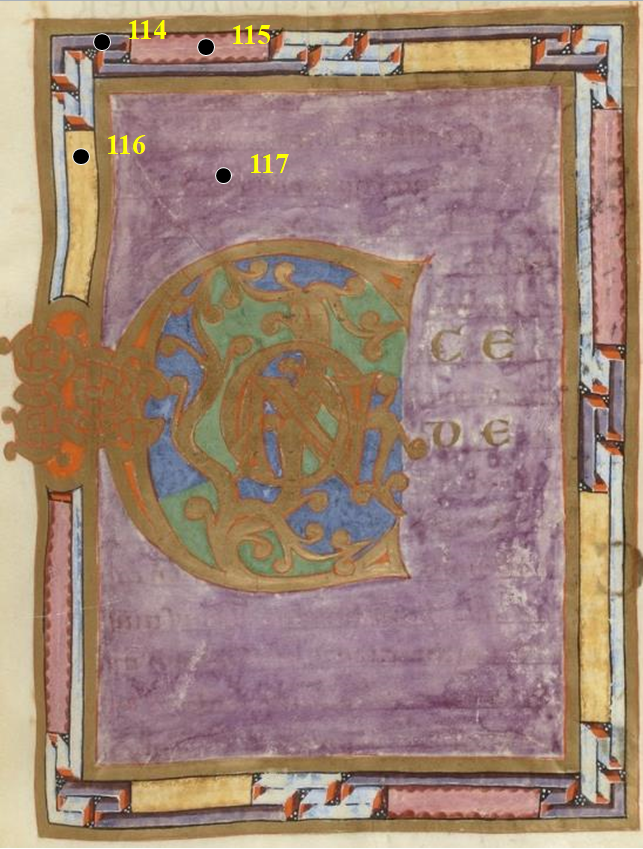 114
115
116
117
CON
CE
DE